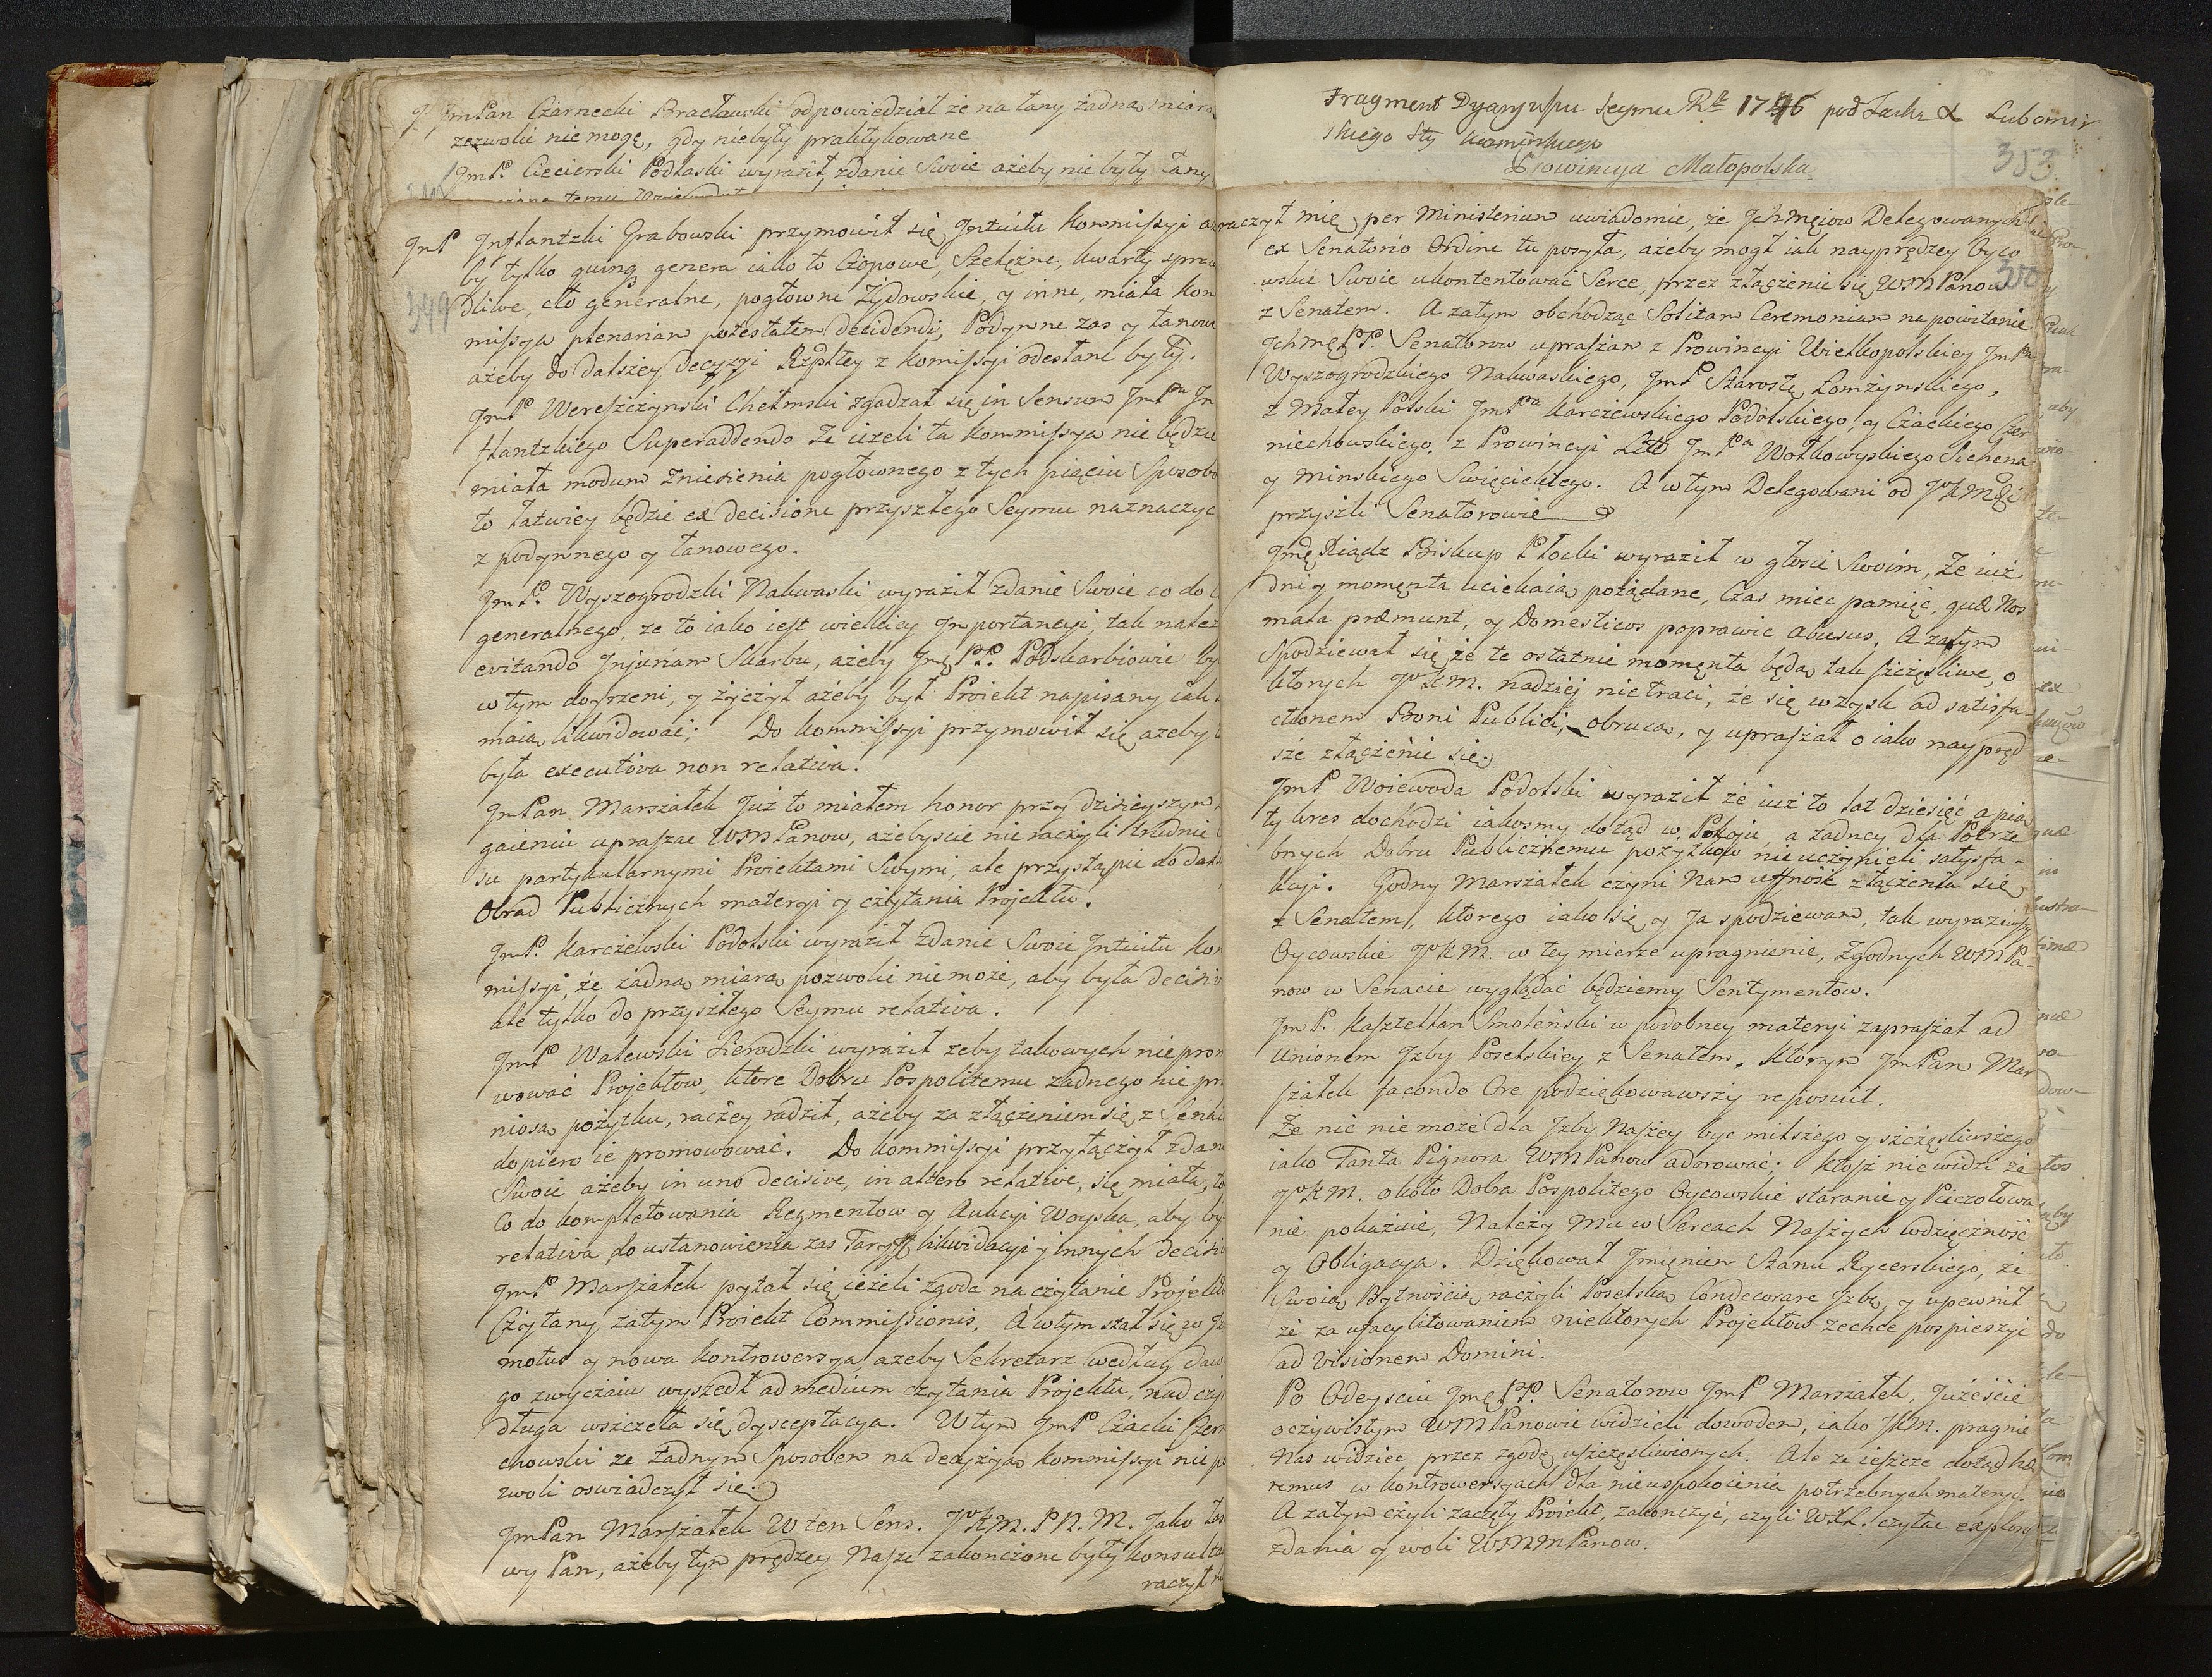 JmPan Czarnecki Bracławski odpowiedział że na łany żadną miarą
zezwolić nie mogę, gdy niebyły praktykowane
JmP. Ciecierski Podlaski wyraził zdanie Swoie ażeby nie były łany
JmP Jnflantzki Grabowski przymowił się Jntuitu Kommissyi a
by tylko quinq genera iako to Czopowe, Szelężne, kwarty spra
349 dliwe, cło generalne, pogłowne Zydowskie, y inne, miała Kom
missya plenariam potestatem decidendi, Podymne zas y łanow
ażeby do dalszey Decyzyi Rzpltey z Komissyi odesłane były.
JmP Wereszczynski Chełmski zgadzał się in Sensum JmPna Jn
flantzkiego Superaddendo Ze ieżeli ta Kommissya nie będzie
miała modum Zniesienia pogłownego z tych piąciu Sposob
to łatwiey będzie ex decisione przyszłego Seymu naznaczyc
z podymnego y łanowego.
JmP. Wyszogrodzki Nakwaski wyraził zdanie Swoie co do
generalnego, ze to iako iest wielkiey Jmportancyi, tak należ
evitando Jnjuriam Skarbu, ażeby Jmę PP. Podskarbiowie by
w tym doyrzeni, y życzył ażeby był Proiekt napisany iak
maią likwidować; Do Kommissyi przymowił się ażeby
była executiva non relativa.
JmPan Marszałek Już to miałem honor przy dzisieyszym
gaieniu upraszac WMPanow, ażebyscie nie raczyli trudnic
su partykularnymi Proiektami Swymi, ale przystąpic do dal
Obrad Publicznych materyi y czytania Projektu.
JmP. Karczewski Podolski wyraził zdanie Swoie Jntuitu Kom
missyi, że żadną miarą pozwolic nie może, aby była decisi
ale tylko do przyszłego Seymu relativa.
JmP Walewski Sieradzki wyraził zeby takowych nie prom
wować Projektow, ktore Dobru Pospolitemu zadnego nie pr
niosą pożytku, raczey radził, ażeby za złączeniem się z Sena
dopiero ie promowować. Do Kommissyi przyłączył zdan
Swoie ażeby in uno decisive, in altero relative, się miała, to
Co do kompletowania Regmentow y Aukcyi Woyska, aby by
relativa, do ustanowienia zas Taryff likwidacyi y innych decisi
JmP Marszałek pytał się ieżeli zgoda na czytanie Projekt
Czytany zatym Proiekt Commissionis, A wtym stał się w Jz
motus y nowa kontrowersya, ażeby Sekretarz według daw
go zwyczaiu wyszedł ad medium czytania Projektu, nad czy
długa wszczeła się dysceptacya. W tym JmP Czacki Czern
chowski ze żadnym Sposobem na decyzyą Kommissyi nie p
zwoli oswiadczył się.
JmPan Marszałek W ten Sens. JoKM. P.N.M. Jako
wy Pan, ażeby tym prędzey Nasze zakończone były konsulta
raczył
Fragment Dyaryuszu Seymu Rku 1746 pod Laską X Lubomir
skiego Sty Kazimirskiego
Prowincya Małopolska
353
raczył mię per Ministerium uwiadomic, że Jchmęiow Delegowanych
ex Senatorio Ordine tu posyła, ażeby mogł iak nayprędzey Oyco
350
wskie Swoie ukontentować Serce, przez złączenie się WMPanow
z Senatem. A zatym obchodząc Solitam Ceremoniam na powitanie
Jchmę PP. Senatorow upraszam z Prowincyi Wielkopolskiey JmPa
Wyszogrodzkiego Nakwaskiego, JmP Starostę Łomżynskiego,
z Małey Polski JmPna Karczewskiego Podolskiego, y Czackiego Czer
niechowskiego, z Prowincyi Litt JmPa Wołkowyskiego Sichena
y Minskiego Swięcickiego. A wtym Delegowani od JoKMęi
przyszli Senatorowie
Jmę Xiądz Biskup Płocki wyraził w głosie Swoim, Ze iuż
dni y momęta uciekaią pożądane, Czas miec pamięć, quæ Nos
mala præmunt, y Domesticos poprawic abusus. A zatym
Spodziewał się że te ostatnie momęta będą tak szczęsliwe, o
ktorych JoKM. nadziej nie traci, że się w zysk ad satisfa
ctionem Boni Publici, obrucą, y upraszał o iako nayprę
sze złączenie się.
JmP Woiewoda Podolski wyraził że iuż to lat dziesięć a pią
ty kres dochodzi iakosmy dotąd w Pokoiu, a żadney dla Potrze
bnych Dobru Publicznemu pożytkow nie uczynieli satysfa
kcyi. Godny Marszałek czyni Nam uffność złączenia się
z Senatem, ktorego iako się y Ja spodziewam, tak wyraziwszy
Oycowskie JoKM. w tey mierze upragnienie, Zgodnych WMPa
now w Senacie wyglądać będziemy Sentymentow.
JmP. Kasztellan Smoleński w podobney materyi zapraszał ad
Unionem Jzby Poselskiey z Senatem. Ktorym JmPan Mar
szałek facondo Ore podziękowawszy reposuit.
Że nic nie może dla Jzby Naszey byc milszego y szczęsliwszego
iako Tanta Pignora WMPanow adorować; ktoż nie widzi że
JoKM. około Dobra Pospolitego Oycowskie staranie y Pieczołowa
nie pokażuie, Należy Mu w Sercach Naszych wdzięczność
y Obligacya. Dziękował Jmięniem Stanu Rycerskiego, że
Swoią Bytnością raczyli Poselską Condecorare Jzbę, y upewnił
że za ufacylitowaniem niektorych Projektow zechce pospieszyc
ad visionem Domini.
Po Odeysciu Jmę PP. Senatorow JmP Marszałek, Jużeście
oczywistym WMPanowie widzieli dowodem, iako JKM. pragnie
Nas widziec przez zgodę uszczęsliwionych. Ale że ieszcze dotąd hæ
remus w kontrowersyach dla nieuspokoienia potrzebnych materyi.
A zatym czyli zaczęty Proiekt, zakonczyć, czyli WXL. czytac exploruię
zdania y woli WMMPanow.